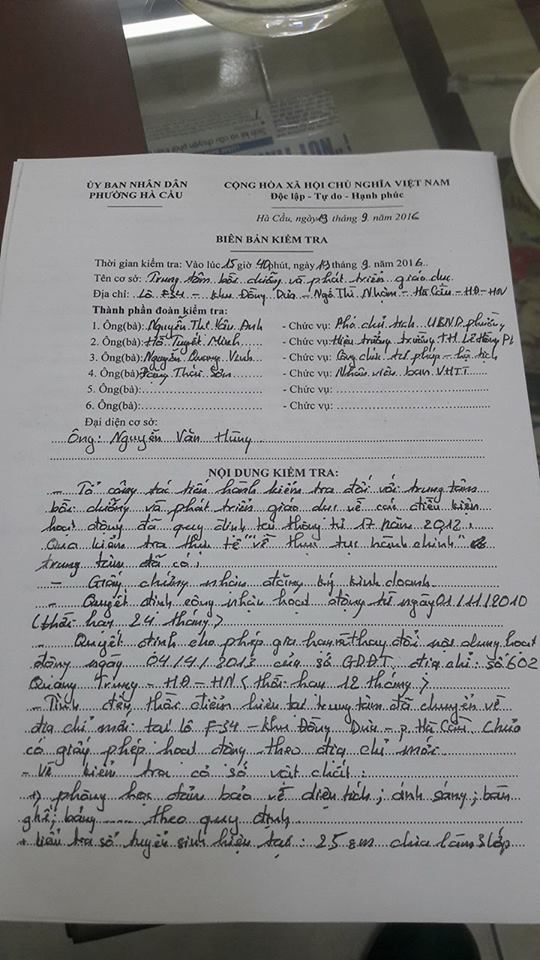 ỦY BAN NHÂN DÂN
PHƯỜNG HÀ CẦU
CỘNG HÒA XÃ HỘI CHỦ NGHĨA VIỆT NAM
Độc lập - Tự do - Hạnh phúc
Hà Cầu, ngày 13 tháng 9 năm 2016
BIÊN BẢN KIỂM TRA
Thời gian kiểm tra: Vào lúc 15 giờ 40 phút, ngày 13 tháng 9 năm 2016
Tên cơ sở: Trung tâm bồi dưỡng và phát triển giáo dục
Địa chỉ: Lô F34 - Khu Đồng Dưa - Ngô Thì Nhậm - Hà Cầu - HĐ - HN
Thành phần đoàn kiểm tra:
1. Ông(bà): Nguyễn Thị Vân Anh - Chức vụ: Phó chủ tịch UBND phường
2. Ông(bà): Hồ Tuyết Minh - Chức vụ: Hiệu trưởng trường TH Lê Hồng P
3. Ông(bà): Nguyễn Quang Vinh - Chức vụ: Công chức tư pháp - hộ tịch
4. Ông(bà): Đặng Thái Sơn - Chức vụ: Nhân viên ban VHTT
5. Ông(bà): - Chức vụ:
6. Ông(bà): - Chức vụ:
Đại diện cơ sở:
Ông: Nguyễn Văn Hùng
NỘI DUNG KIỂM TRA:
- Tổ công tác tiến hành kiểm tra đối với trung tâm
bồi dưỡng và phát triển giáo dục về các điều kiện
hoạt động đã quy định tại thông tư 17 năm 2012.
Qua kiểm tra thực tế về thủ tục hành chính
trung tâm đã có:
- Giấy chứng nhận đăng ký kinh doanh
- Quyết định công nhận hoạt động từ ngày 01/11/2010
(thời hạn 24 tháng)
- Quyết định cho phép gia hạn và thay đổi nội dung hoạt
động ngày 04/4/2013 của sở GDĐT, địa chỉ: số 602
Quang Trung - HĐ - HN (thời hạn 12 tháng)
- Tính đến thời điểm hiện tại trung tâm đã chuyển về
địa chỉ mới tại lô F34 - khu Đồng Dưa - p. Hà Cầu. Chưa
có giấy phép hoạt động theo địa chỉ mới
- Về kiểm tra cơ sở vật chất:
+) phòng học đảm bảo về diện tích; ánh sáng; bàn
ghế; bảng ... theo quy định
+ kiểm tra số tuyển sinh hiện tại: 25 em chia làm 3 lớp